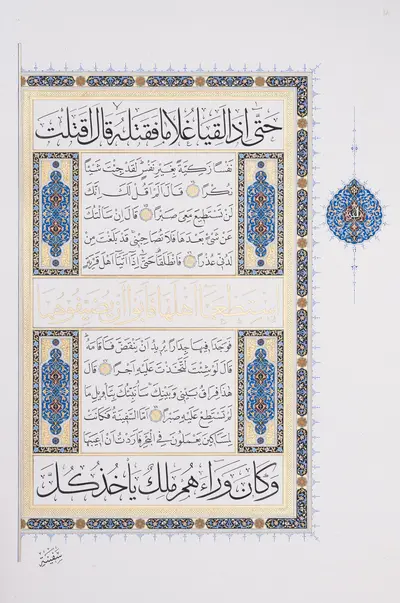 حَتَّىٰ إِذَا لَقِيَا غُلَامًا فَقَتَلَهُ قَالَ أَقَتَلْتَ
نَفْسًا زَكِيَّةً بِغَيْرِ نَفْسٍ لَقَدْ جِئْتَ شَيْئًا
نُكْرًا قَالَ أَلَمْ أَقُلْ لَكَ إِنَّكَ
لَنْ تَسْتَطِيعَ مَعِيَ صَبْرًا قَالَ إِنْ سَأَلْتُكَ
عَنْ شَيْءٍ بَعْدَهَا فَلَا تُصَاحِبْنِي قَدْ بَلَغْتَ مِنْ
لَدُنِّي عُذْرًا فَانْطَلَقَا حَتَّىٰ إِذَا أَتَيَا أَهْلَ قَرْيَةٍ
اسْتَطْعَمَا أَهْلَهَا فَأَبَوْا أَنْ يُضَيِّفُوهُمَا
فَوَجَدَا فِيهَا جِدَارًا يُرِيدُ أَنْ يَنْقَضَّ فَأَقَامَهُ
قَالَ لَوْ شِئْتَ لَتَّخَذْتَ عَلَيْهِ أَجْرًا قَالَ
هَٰذَا فِرَاقُ بَيْنِي وَبَيْنِكَ سَأُنَبِّئُكَ بِتَأْوِيلِ مَا
لَمْ تَسْتَطِعْ عَلَيْهِ صَبْرًا أَمَّا السَّفِينَةُ فَكَانَتْ
لِمَسَاكِينَ يَعْمَلُونَ فِي الْبَحْرِ فَأَرَدْتُ أَنْ أَعِيبَهَا
وَكَانَ وَرَاءَهُمْ مَلِكٌ يَأْخُذُ كُلَّ
سَفِينَةٍ